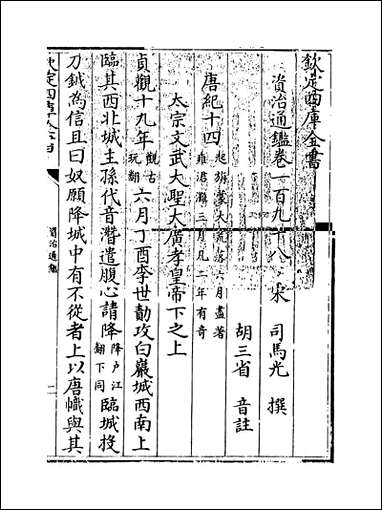 欽定四庫全書
資治通鑑卷一百九十八
宋 司馬光 撰
胡三省 音註
唐紀十四
起旃蒙大荒落六月盡著
雍涒灘三月凡二年有奇
太宗文武大聖大廣孝皇帝下之上
貞觀十九年觀古玩翻六月丁酉李世勣攻白巖城西南上
臨其西北城主孫代音潛遣腹心請降降户江翻下同臨城投
刀鉞為信且曰奴願降城中有不從者上以唐幟與其
資治通鑑